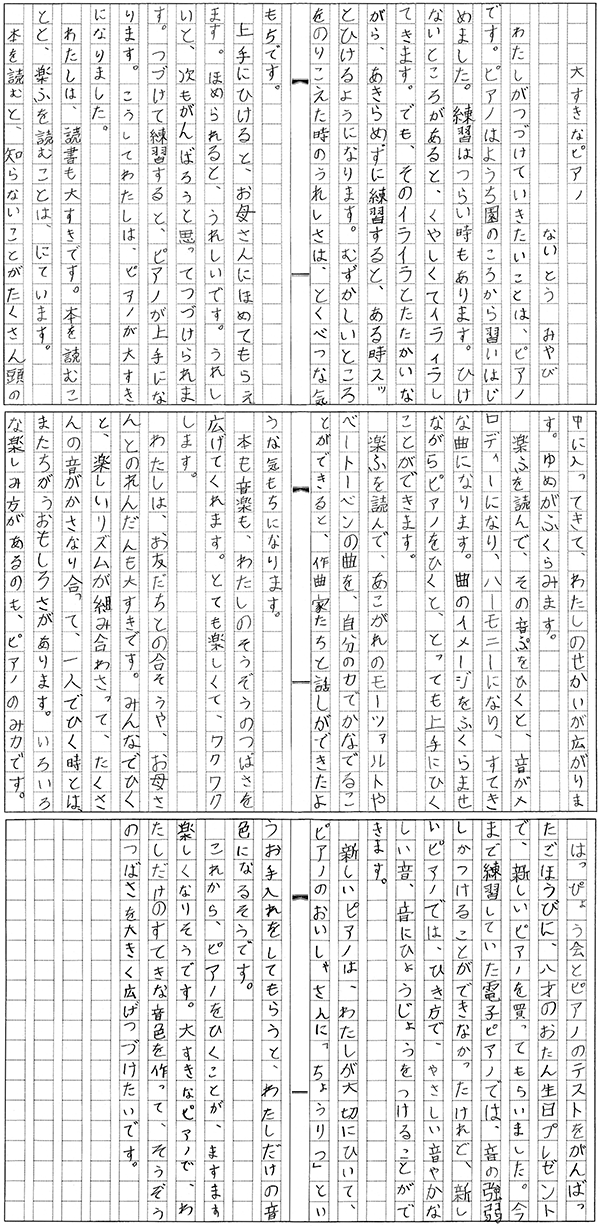 大すきなピアノ
ないとう　みやび
わたしがつづけていきたいことは、ピアノ
です。ピアノはようち園のころから習いはじ
めました。練習はつらい時もあります。ひけ
ないところがあると、くやしくてイライラし
てきます。でも、そのイライラとたたかいな
がら、あきらめずに練習すると、ある時スッ
とひけるようになります。むずかしいところ
をのりこえた時のうれしさは、とくべつな気
もちです。
上手にひけると、お母さんにほめてもらえ
ます。ほめられると、うれしいです。うれし
いと、次もがんばろうと思ってつづけられま
す。つづけて練習すると、ピアノが上手にな
ります。こうしてわたしは、ピアノが大すき
になりました。
わたしは、読書も大すきです。本を読むこ
とと、楽ふを読むことは、にています。
本を読むと、知らないことがたくさん頭の
中に入ってきて、わたしのせかいが広がりま
す。ゆめがふくらみます。
楽ふを読んで、その音ぷをひくと、音がメ
ロディーになり、ハーモニーになり、すてき
な曲になります。曲のイメージをふくらませ
ながらピアノをひくと、とっても上手にひく
ことができます。
楽ふを読んで、あこがれのモーツァルトや
ベートーベンの曲を、自分の力でかなでるこ
とができると、作曲家たちと話しができたよ
うな気もちになります。
本も音楽も、わたしのそうぞうのつばさを
広げてくれます。とても楽しくて、ワクワク
します。
わたしは、お友だちとの合そうや、お母さ
んとのれんだんも大すきです。みんなでひく
と、楽しいリズムが組み合わさって、たくさ
んの音がかさなり合って、一人でひく時とは
またちがうおもしろさがあります。いろいろ
な楽しみ方があるのも、ピアノのみ力です。
はっぴょう会とピアノのテストをがんばっ
たごほうびに、八才のおたん生日プレゼント
で、新しいピアノを買ってもらいました。今
まで練習していた電子ピアノでは、音の強弱
しかつけることができなかったけれど、新し
いピアノでは、ひき方で、やさしい音やかな
しい音、音にひょうじょうをつけることがで
きます。
新しいピアノは、わたしが大切にひいて、
ピアノのおいしゃさんに「ちょうりつ」とい
うお手入れをしてもらうと、わたしだけの音
色になるそうです。
これから、ピアノをひくことが、ますます
楽しくなりそうです。大すきなピアノで、わ
たしだけのすてきな音色を作って、そうぞう
のつばさを大きく広げつづけたいです。